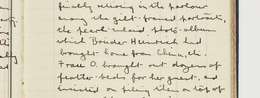 finally arriving in the parlour
among the gilt-framed portraits,
the pearl-inlaid photo-album
which Bruder Heinrich had
brought home from China, etc.
Frau O. brought out dozens of
feather beds for her guest, and
insisted on piling them on top of